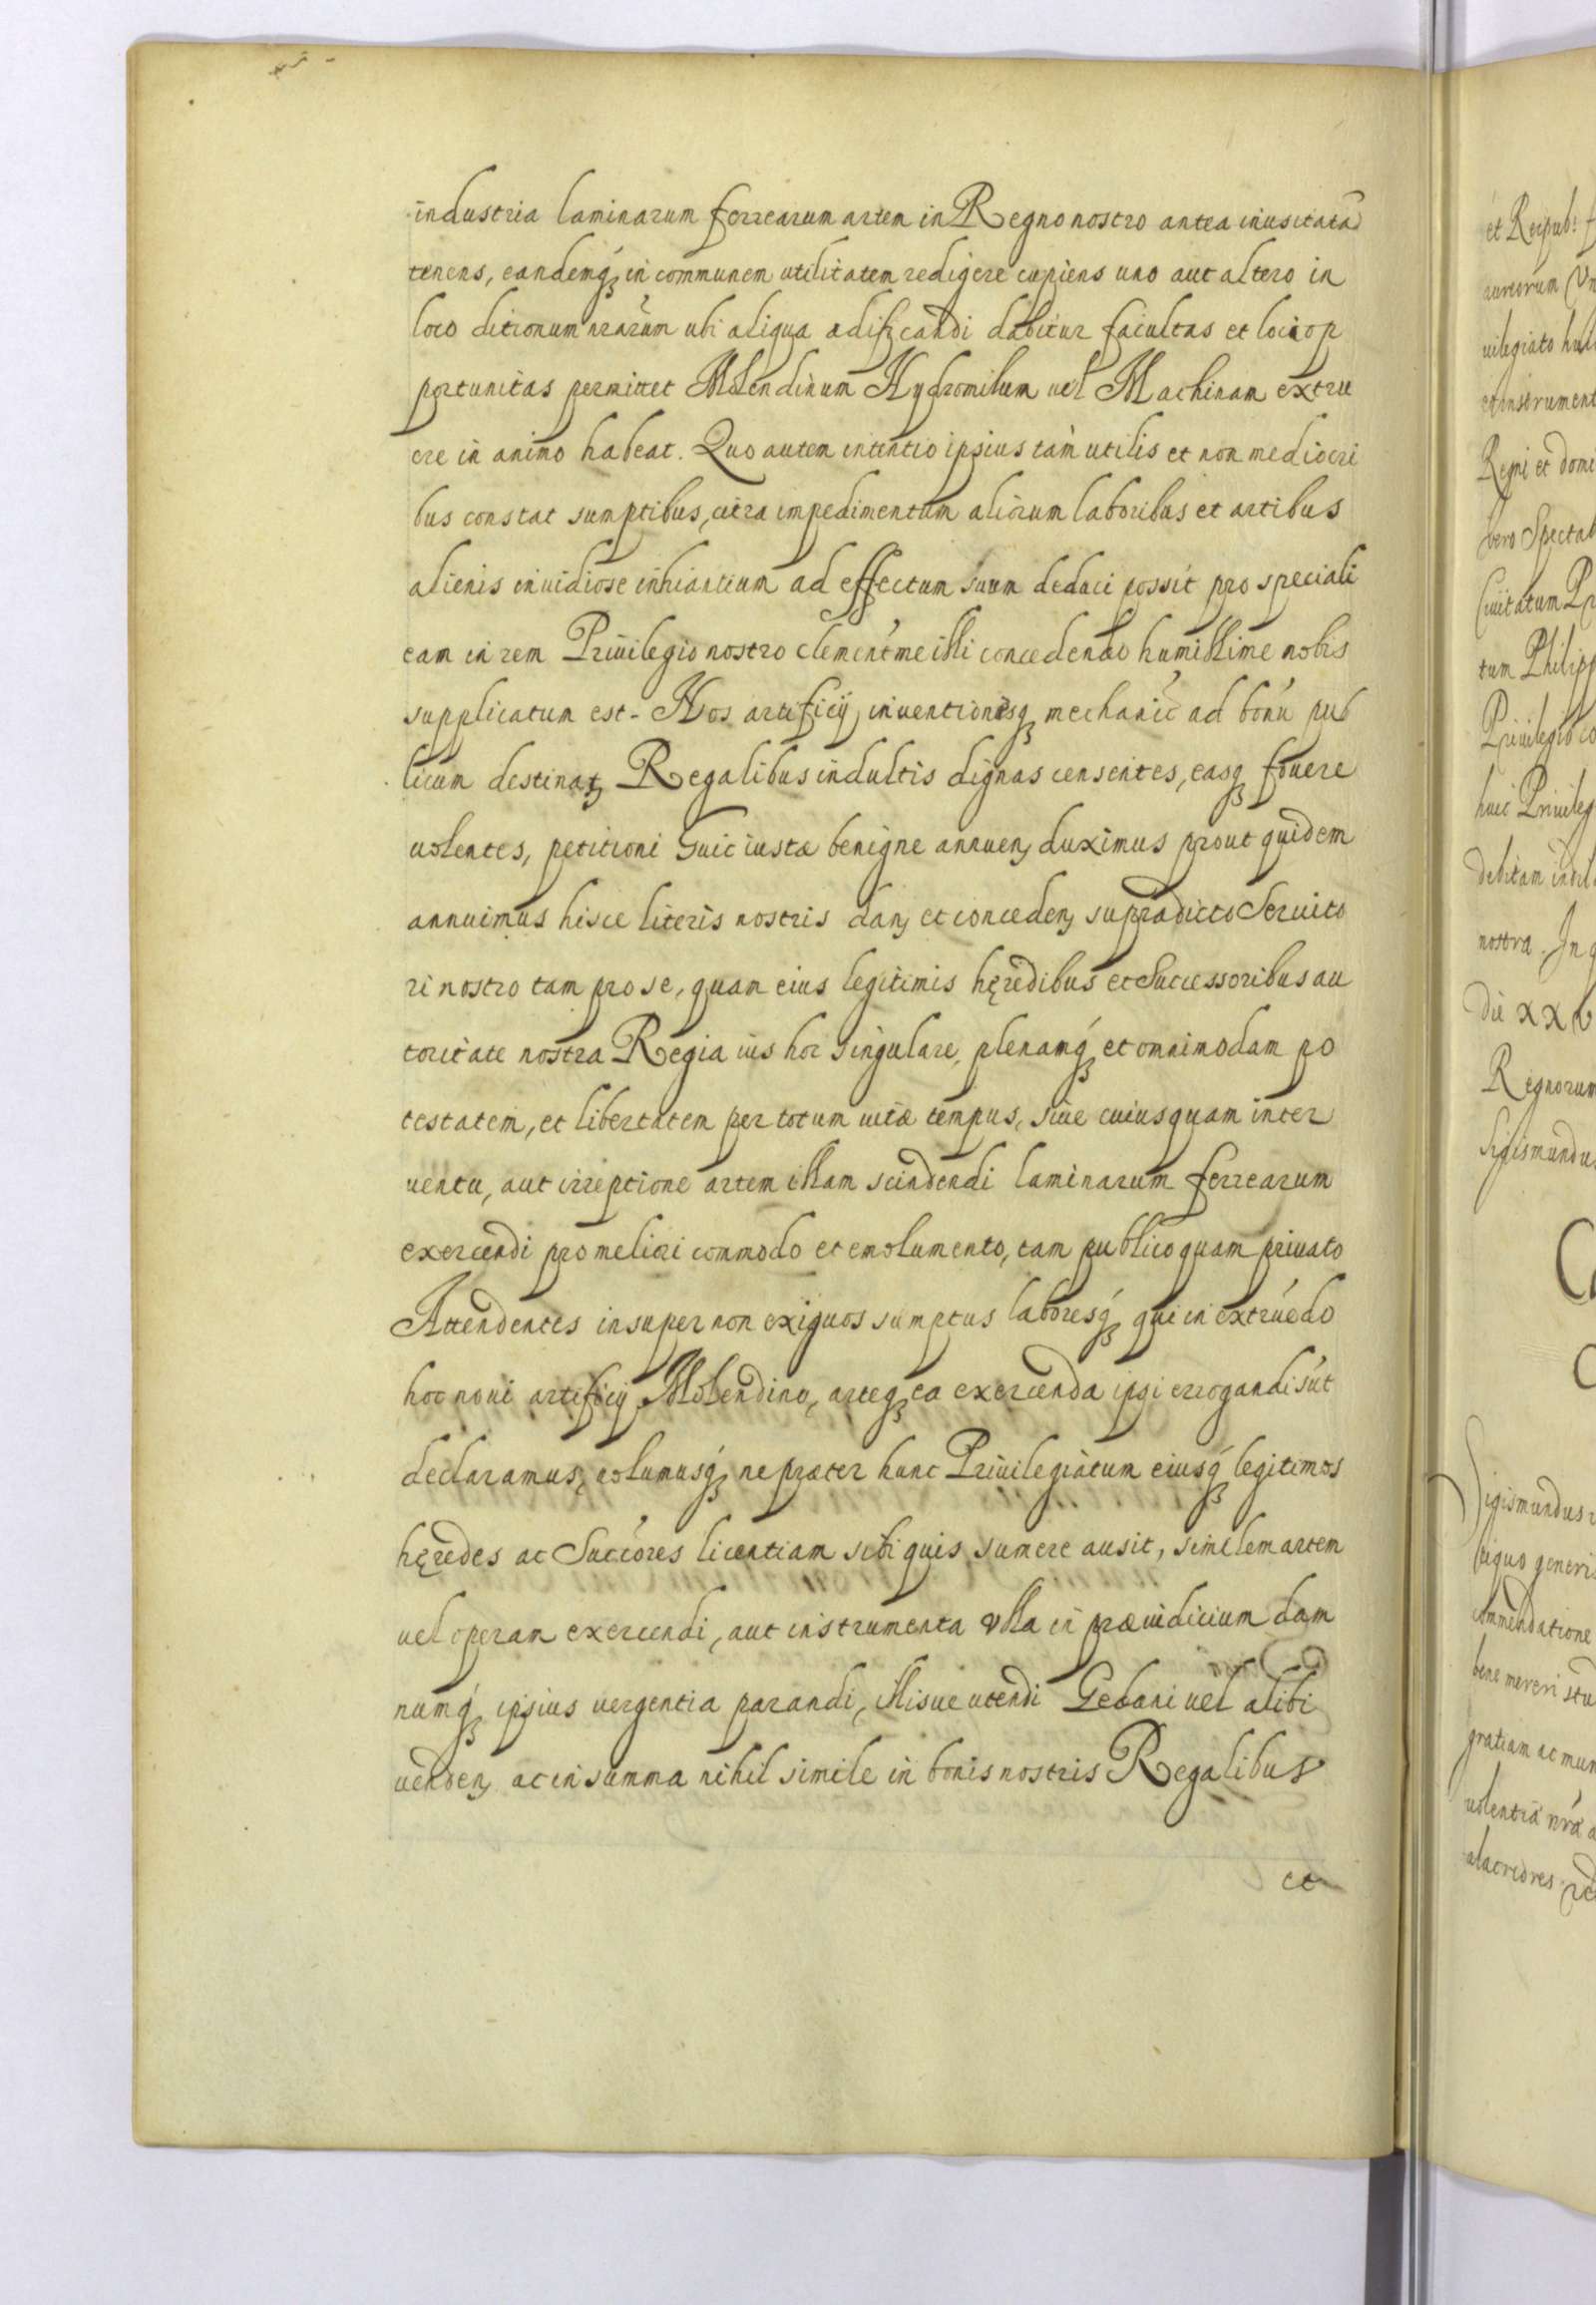 industria laminarum ferrearum artem in Regno nostro antea inusitatã
tenens, eandemq́ȝ in communem utilitatem redigere cupiens uno aut altero in
loco ditionum nrãrum ubi aliqua ædificandi dabitur facultas et loci op
portunitas permittet Molendinum Hydromilum vel Machinam extru
ere in animo habeat. Quo autem intentio ipsius tam utilis et non mediocri
bus constat sumptibus, citra impedimentum aliorum laboribus et artibus
alienis invidiose inhiantium ad effectum suum deduci possit pro speciali
eam in rem Privilegio nostro clementme illi concedendo humillime nobis
supplicatum est. Nos artificij, inventionesqȝ mechanic̃ ad bonũ pub
licum destinatȝ Regalibus indultis dignas censentes, easqȝ fovere
volentes, petitioni huic iustæ benigne annuenȝ duximus prout quidem
annuimus hisce literis nostris danȝ et concedenȝ supradicto Servito
ri nostro tam pro se, quam eius legitimis hęredibus et Successoribus au
toritate nostra Regia ius hoc singulare, plenamq́ȝ et omnimodam po
testatem, et libertatem per totum vitæ tempus, sine cuiusquam inter
ventu, aut irreptione artem illam scindendi laminarum ferrearum
exercendi pro meliori commodo et emolumento, tam publico quam privato
Attendentes insuper non exiguos sumptus laboresq́ȝ qui in extruẽdo
hoc novi artificij Molendino, arteqȝ ea exercenda ipsi errogandi sũt
declaramus, volumusq́ȝ ne præter hunc Privilegiatum eiusq́ȝ legitimos
hęredes ac Succõres licentiam sibi quis sumere ausit, similem artem
vel operam exercendi, aut instrumenta ulla in præiudicium dam
numq́ȝ ipsius vergentia parandi, illisve utendi Gedani vel alibi
vendenȝ ac in summa nihil simile in bonis nostris Regalibus
et
et Reipub:
aureorum
vilegiato
et instrument
Regni et domi
vero Spectab
Civitatum
tum Philipp
Privilegio co
huic Privileg
debitam
nostra. In
die XXV
Regnorum
Sigismundus
Sigismundus
tiquo generis
commendatione
bene mereri stu
gratiam ac mun
volentiã nrã a
alacriores